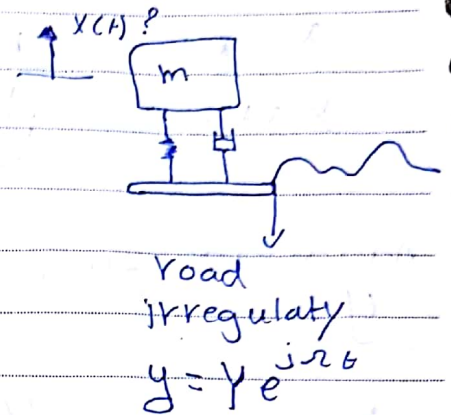 X(t) ?
m
road
irregulaty
y = Y e^{jΩt}